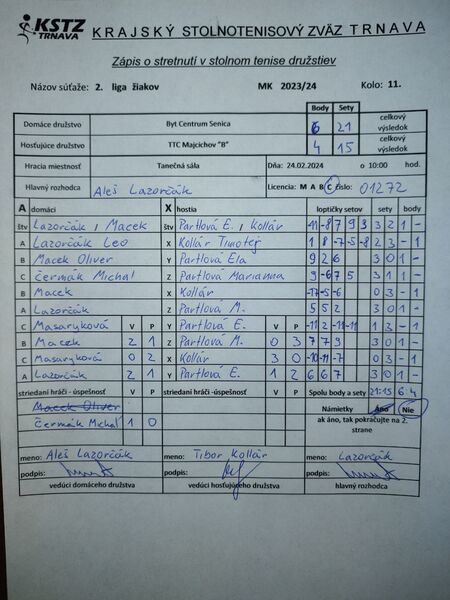 KSTZ TRNAVA KRAJSKÝ STOLNOTENISOVÝ ZVÄZ TRNAVA
Zápis o stretnutí v stolnom tenise družstiev
Názov súťaže: 2. liga žiakov MK 2023/24 Kolo: 11.
Body Sety
Domáce družstvo Byt Centrum Senica 6 21 celkový výsledok
Hosťujúce družstvo TTC Majcichov "B" 4 15 celkový výsledok
Hracia miestnosť Tanečná sála Dňa: 24.02.2024 o 10:00 hod.
Hlavný rozhodca Aleš Lazorčák Licencia: M A B C číslo: 01272
A domáci X hostia loptičky setov sety body
štv Lazorčák, Macek štv Partlová E., Kollár -11 -8 7 9 3 3 2 1 -
A Lazorčák Leo X Kollár Timotej 1 8 -7 -5 -8 2 3 - 1
B Macek Oliver Y Partlová Ela 9 2 6 3 0 1 -
C Čermák Michal Z Partlová Marianna 9 -6 7 5 3 1 1 -
B Macek X Kollár -17 -5 -6 0 3 - 1
A Lazorčák Z Partlová M. 5 5 2 3 0 1 -
C Masaryková V P Y Partlová E. V P -11 2 -11 -11 1 3 - 1
B Macek 2 1 Z Partlová M. 0 3 7 7 9 3 0 1 -
C Masaryková 0 2 X Kollár 3 0 -10 -11 -7 0 3 - 1
A Lazorčák 2 1 Y Partlová E. 1 2 6 6 7 3 0 1 -
striedaní hráči - úspešnosť V P striedaní hráči - úspešnosť V P Spolu body a sety 21:15 6 4
Macek Oliver Námietky Áno Nie
Čermák Michal 1 0 ak áno, tak pokračujte na 2. strane
meno: Aleš Lazorčák meno: Tibor Kollár meno: Lazorčák
podpis: podpis: podpis:
vedúci domáceho družstva vedúci hosťujúceho družstva hlavný rozhodca